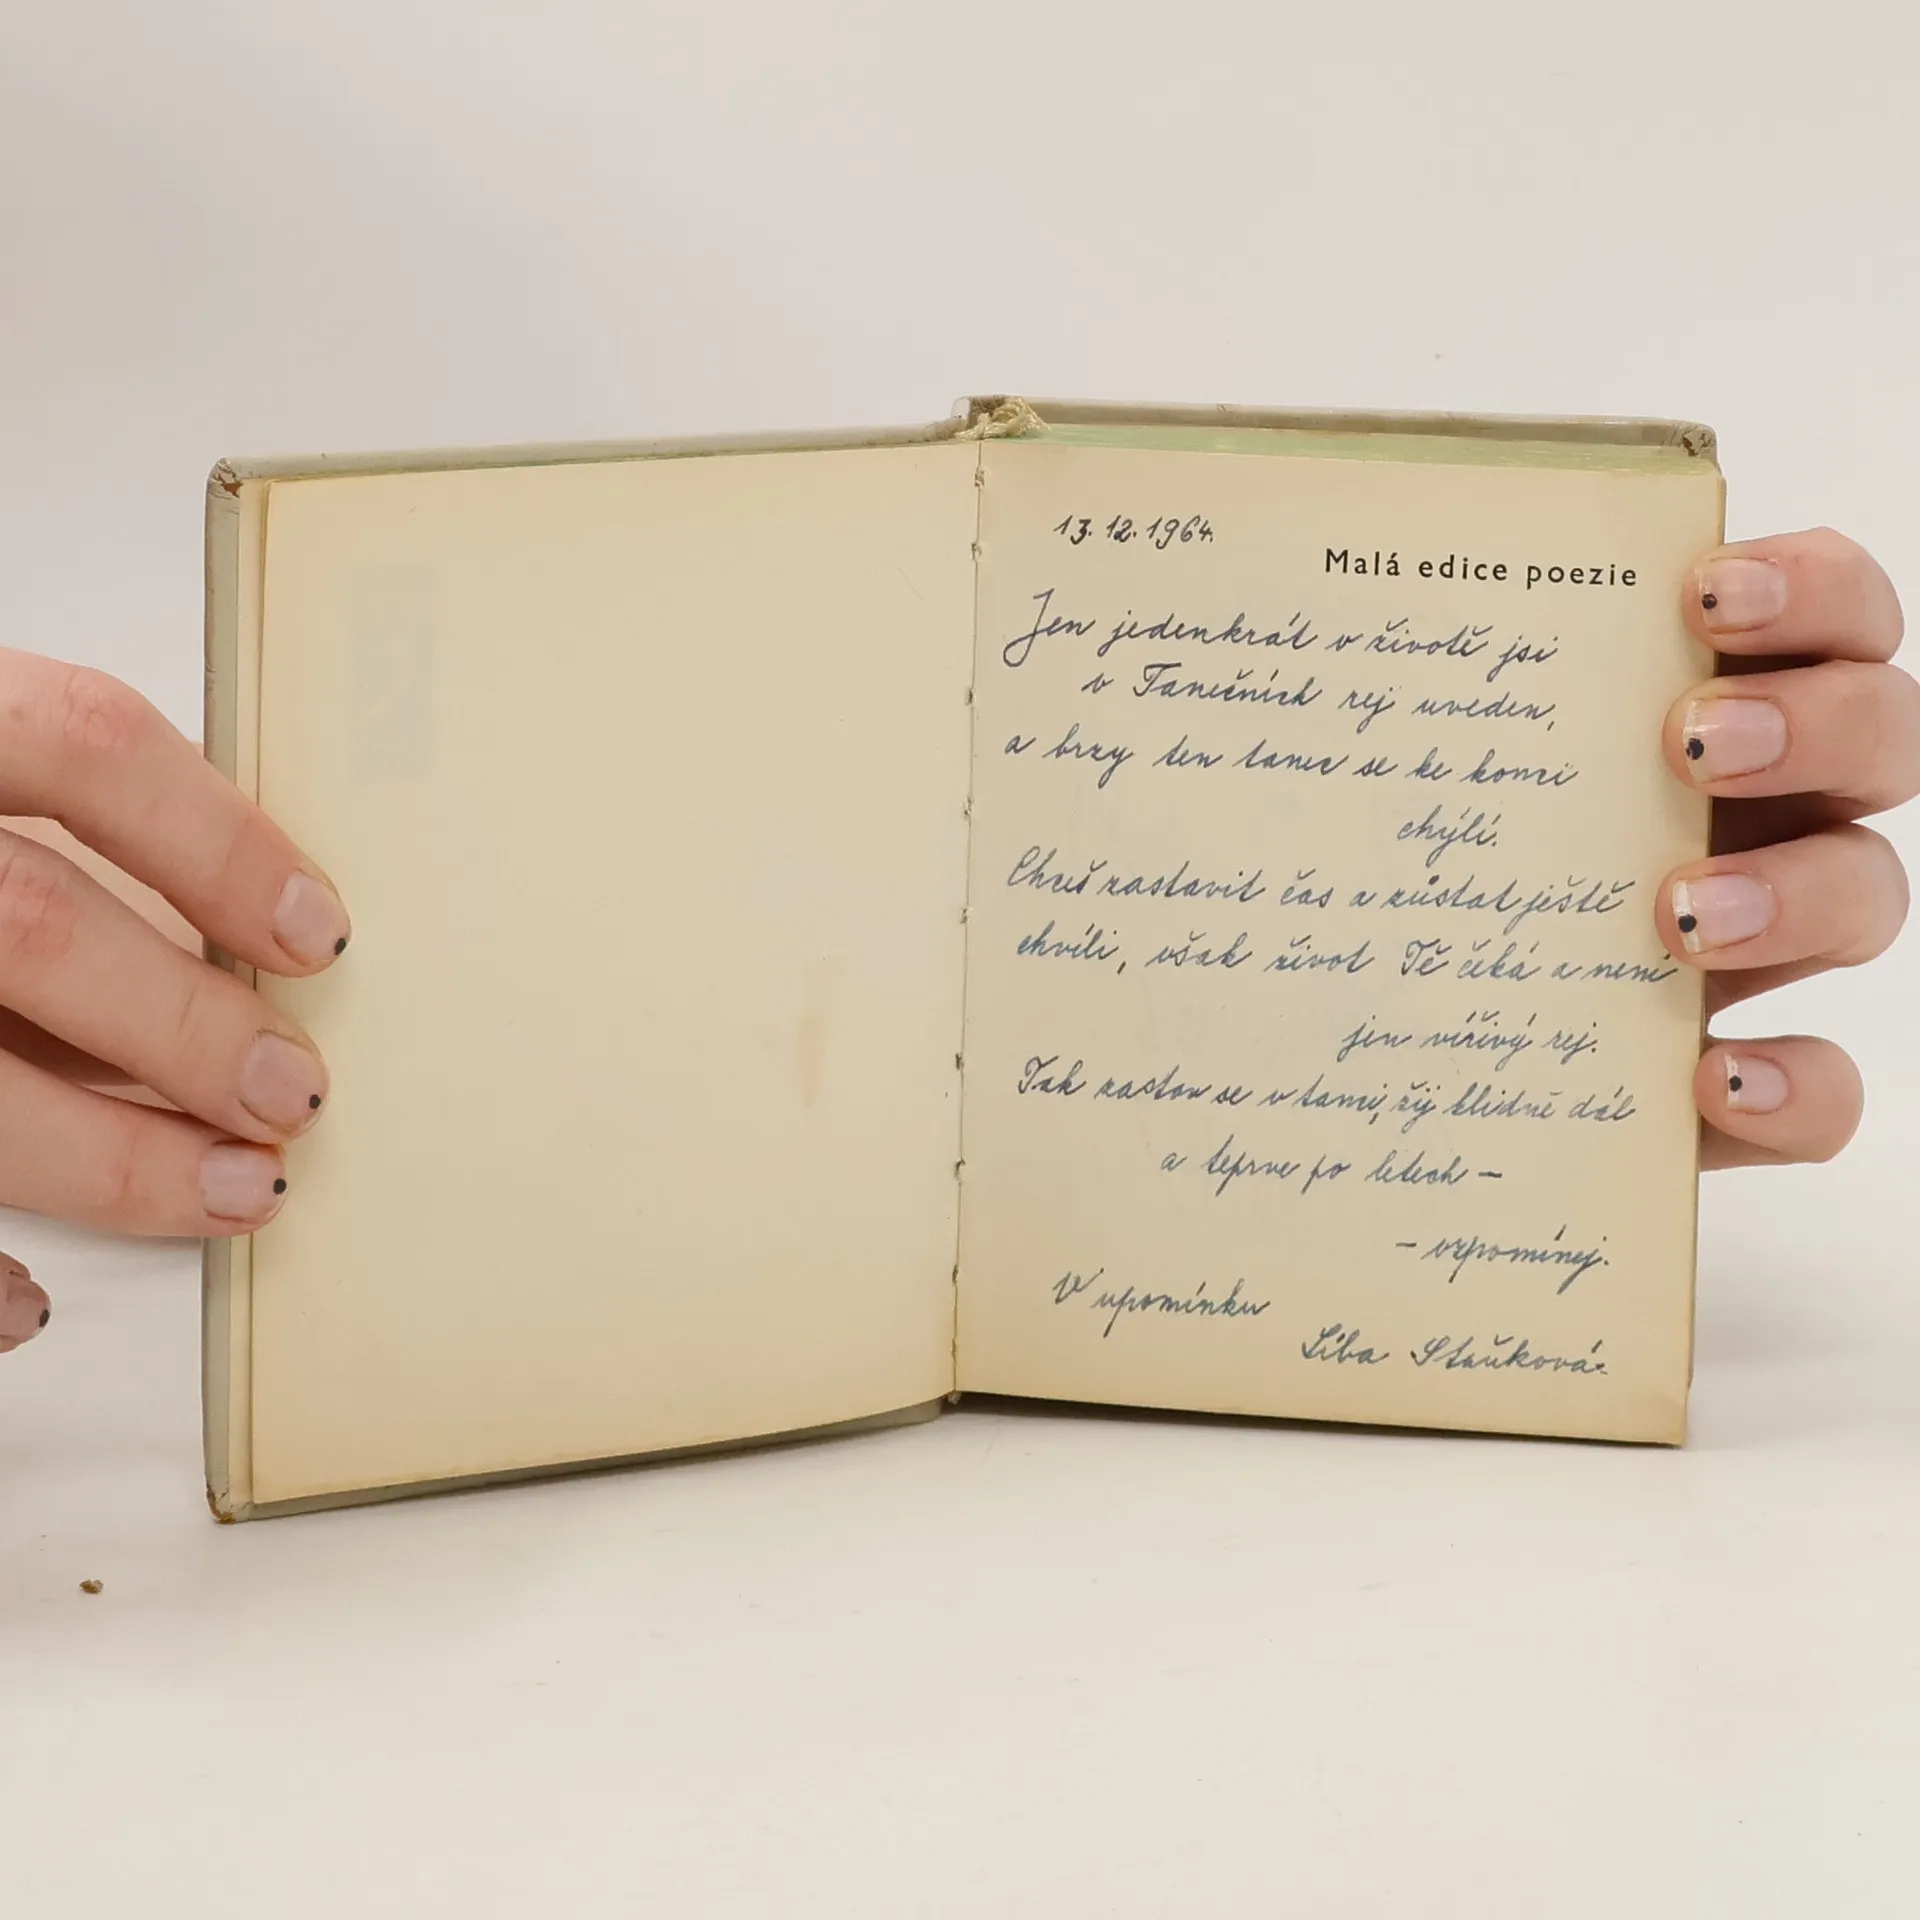 13. 12. 1964.
Malá edice poezie
Jen jedenkrát v životě jsi
v Tanečních rej uveden,
a brzy ten tanec se ke konci
chýlí.
Chceš zastavit čas a zůstat ještě
chvíli, však život Tě čeká a není
jen vířivý rej.
Tak zastav se v tanci, žij klidně dál
a teprve po letech –
– vzpomínej.
V upomínku
Líba Staňková